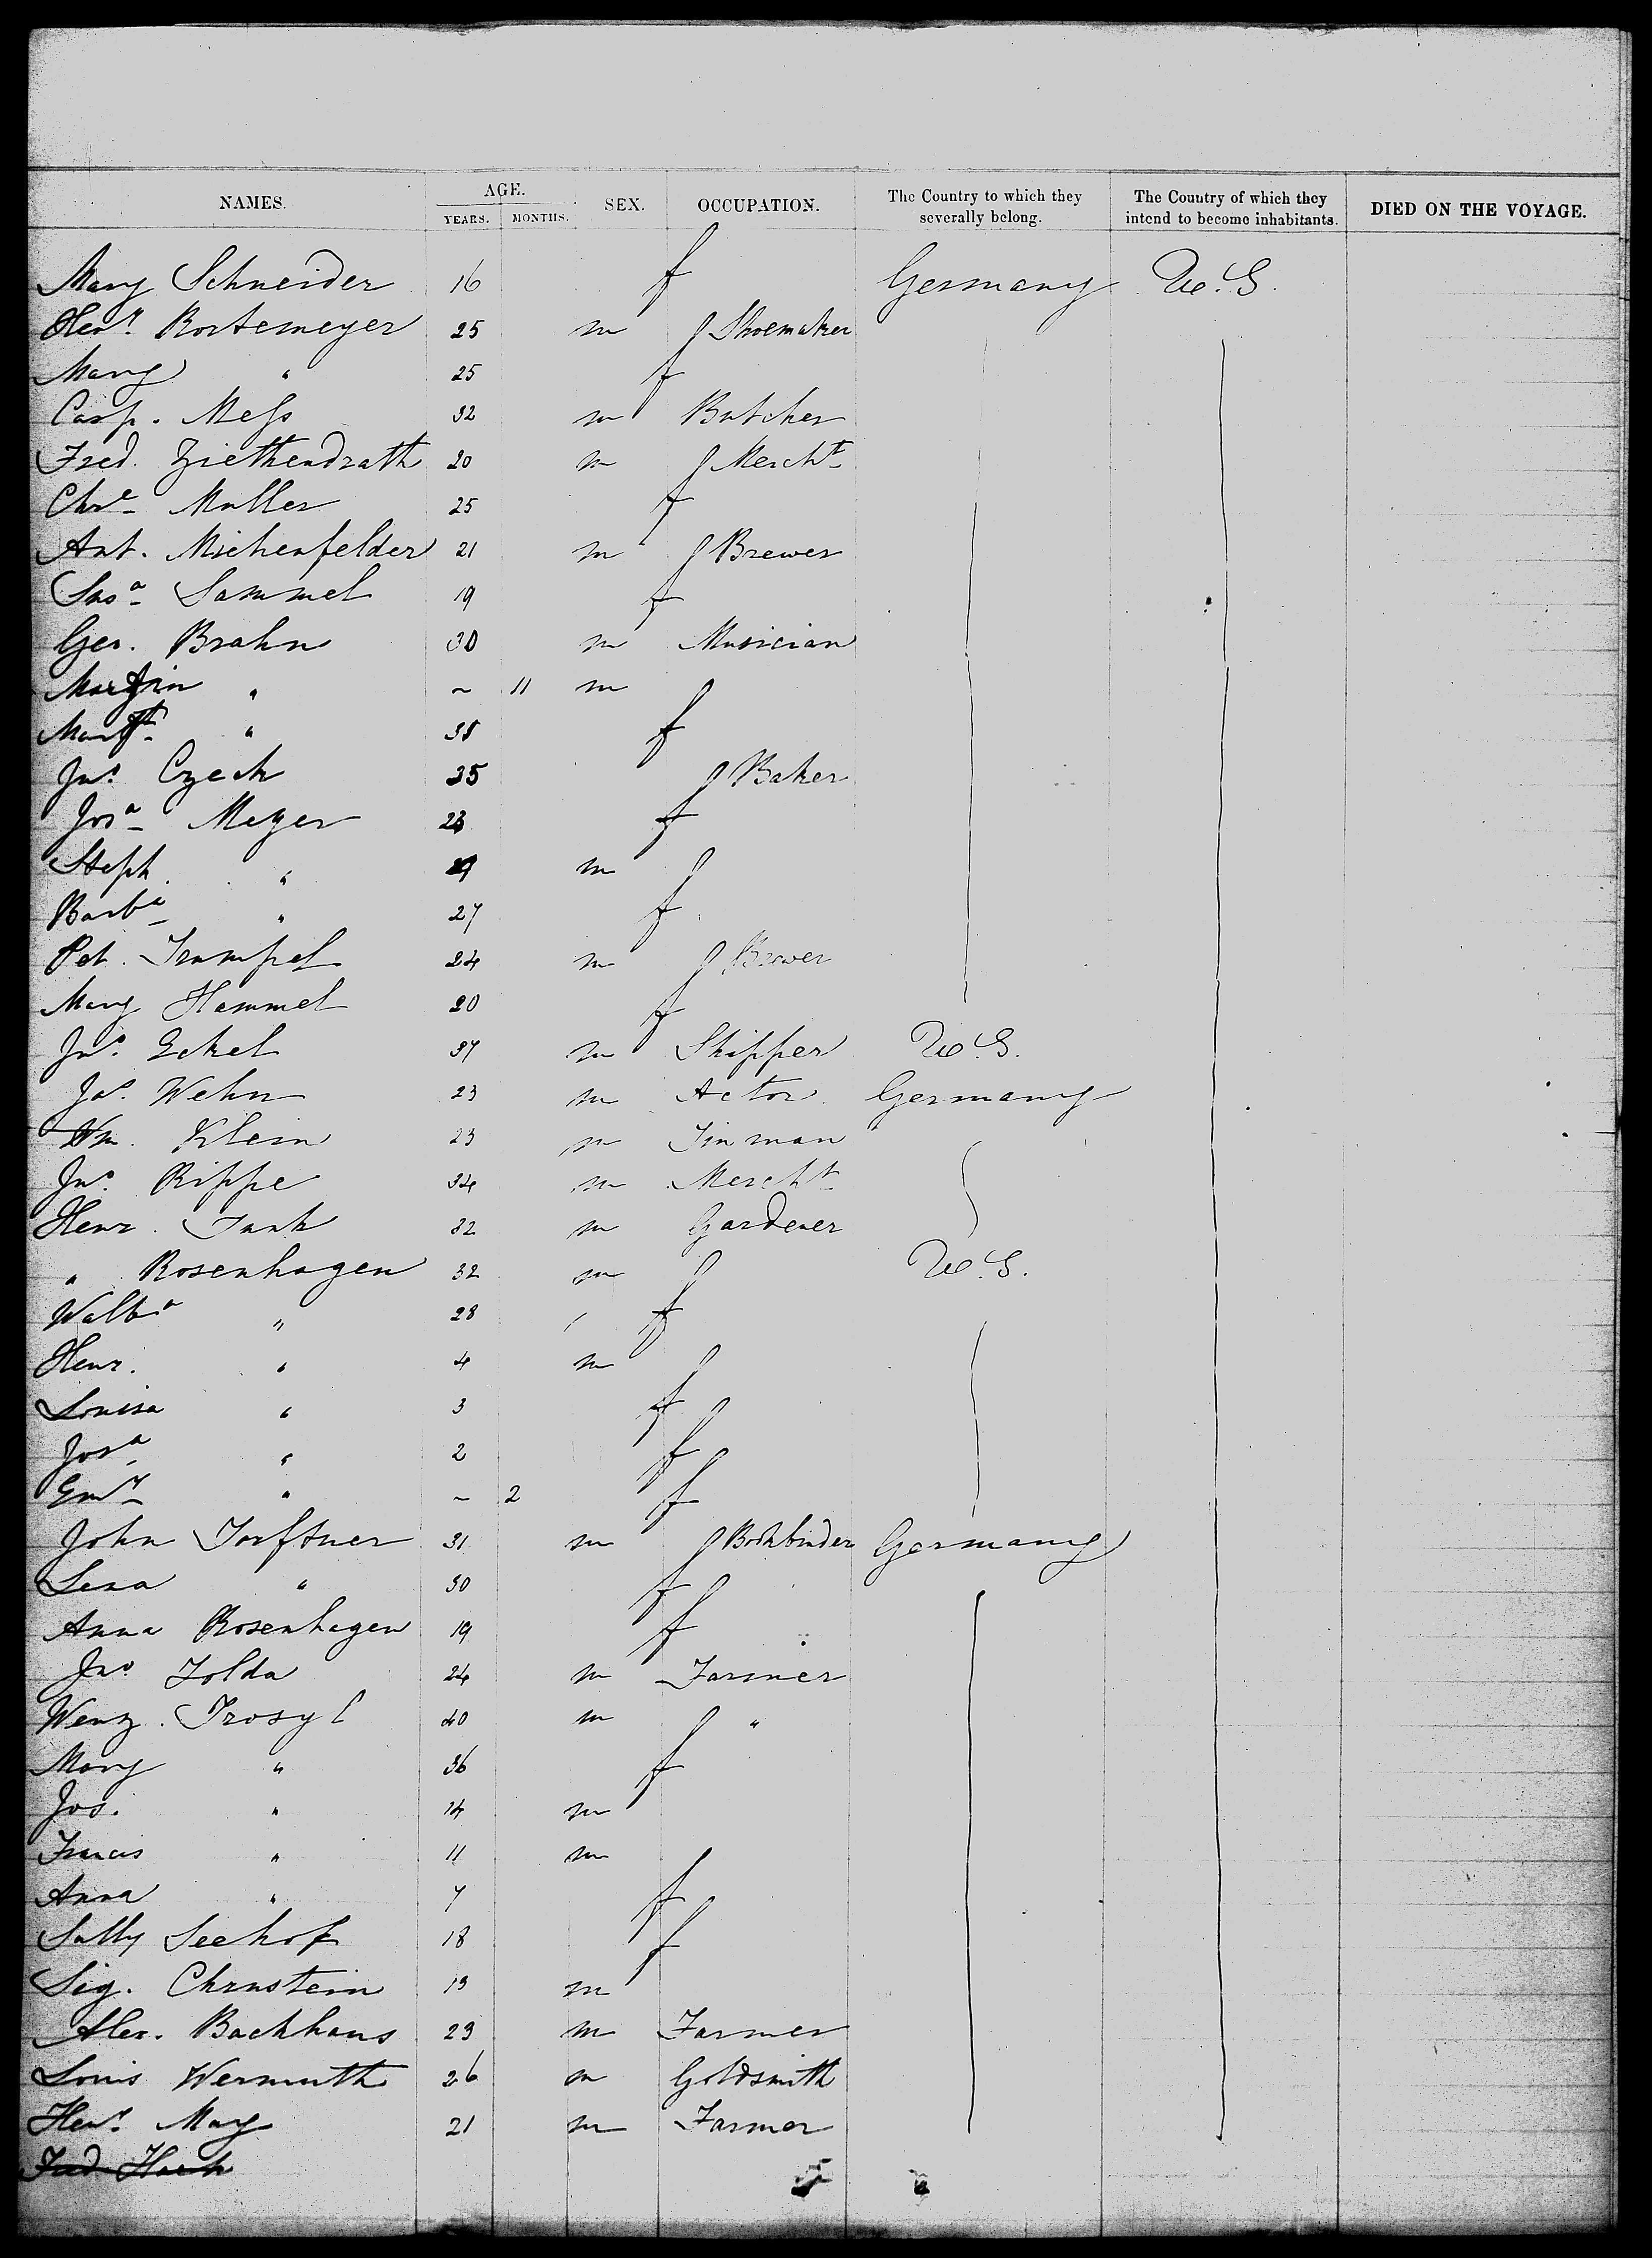 NAMES. AGE. SEX. OCCUPATION. The Country to which they severally belong. The Country of which they intend to become inhabitants. DIED ON THE VOYAGE.
YEARS. MONTHS.
Mary Schneider 16 f Germany U.S.
Henr. Rostemeyer 25 m Shoemaker
Mary " 25 f
Casp. Mess 32 m Butcher
Fred. Ziethendrath 20 m Mercht
Chre Muller 25 f
Ant. Michenfelder 21 m Brewer
Susa Sammel 19 f
Geo. Brahn 30 m Musician
Martin " ~ 11 m
Margt " 38 f
Jno. Czech 25 Baker
Josa Meyer 23 f
Steph. " m
Barba " 27 f
Pet. Trumpel 24 m Brewer
Mary Hammel 20 f
Jno. Eckel 37 m Skipper U.S.
Jos. Wehn 23 m Actor Germany
Wm. Klein 23 m Tinman
Jno. Rippe 34 m Mercht
Henr. Tank 32 m Gardener
" Rosenhagen 32 m U.S.
Walba " 28 f
Henr. " 4 m
Louisa " 3 f
Josa " 2 f
Emy " ~ 2 f
John Torftner 31 m Bookbinder Germany
Lena " 30 f
Anna Rosenhagen 19 f
Jno. Tolda 24 m Farmer
Wenz. Trosyl 40 m "
Mary " 36 f
Jos. " 14 m
Francis " 11 m
Anna " 7 f
Sally Seehof 18 f
Sig. Chrnstein 19 m
Alex. Backhaus 23 m Farmer
Louis Wermuth 26 m Goldsmith
Henr. May 21 m Farmer
Fred. Hach